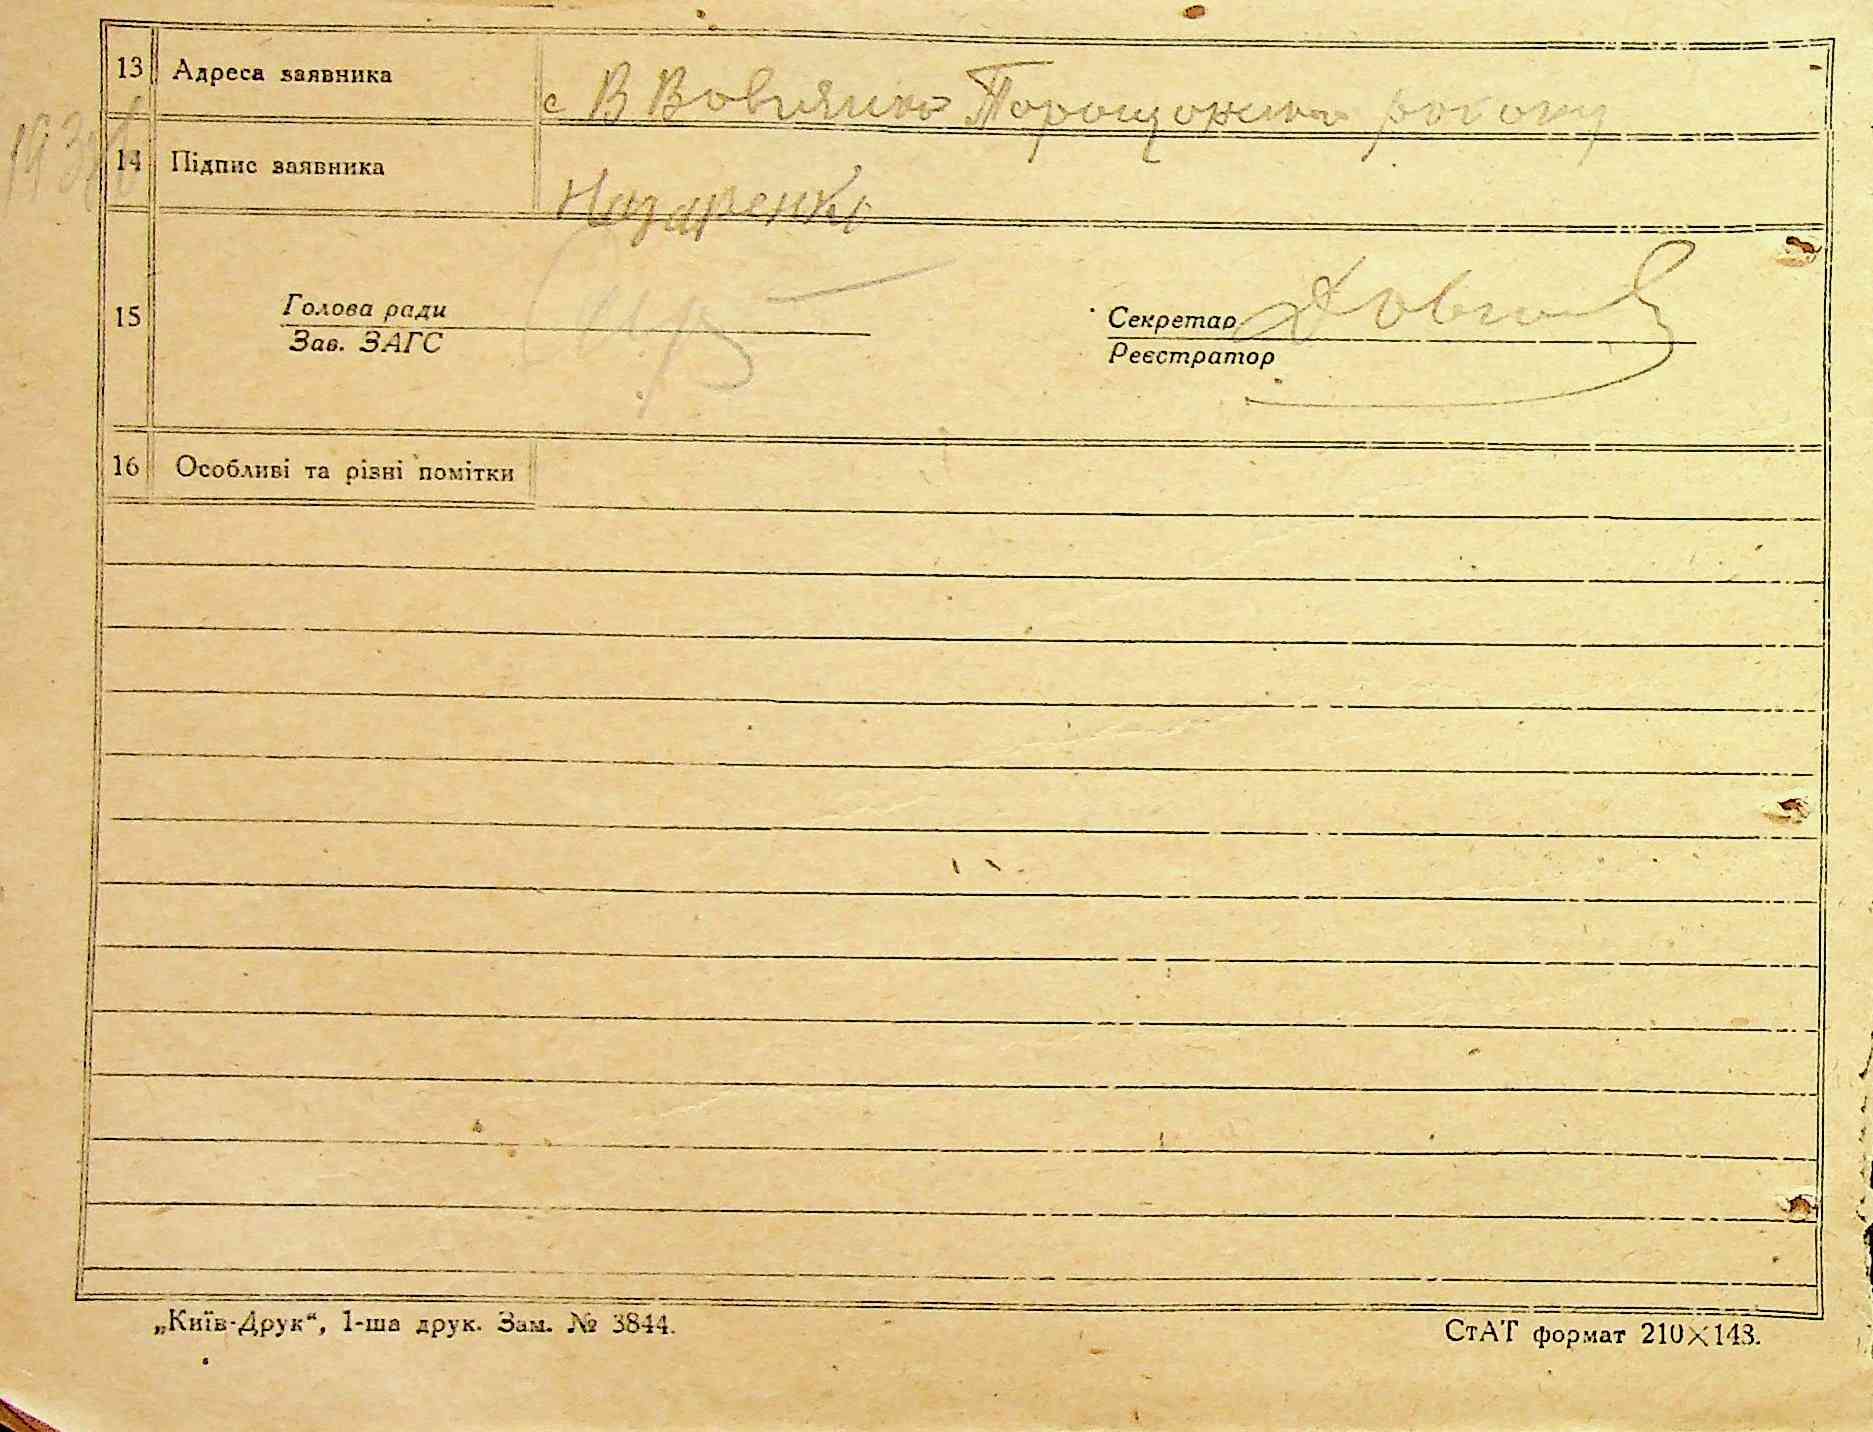 13 Адреса заявника с В Вовнянка Таращанськ району
14 Підпис заявника Назаренко
15 Голова ради Секретар Довго
Зав. ЗАГС Реєстратор
16 Особливі та різні помітки
„Київ-Друк“, 1-ша друк. Зам. № 3844. СтАТ формат 210×143.